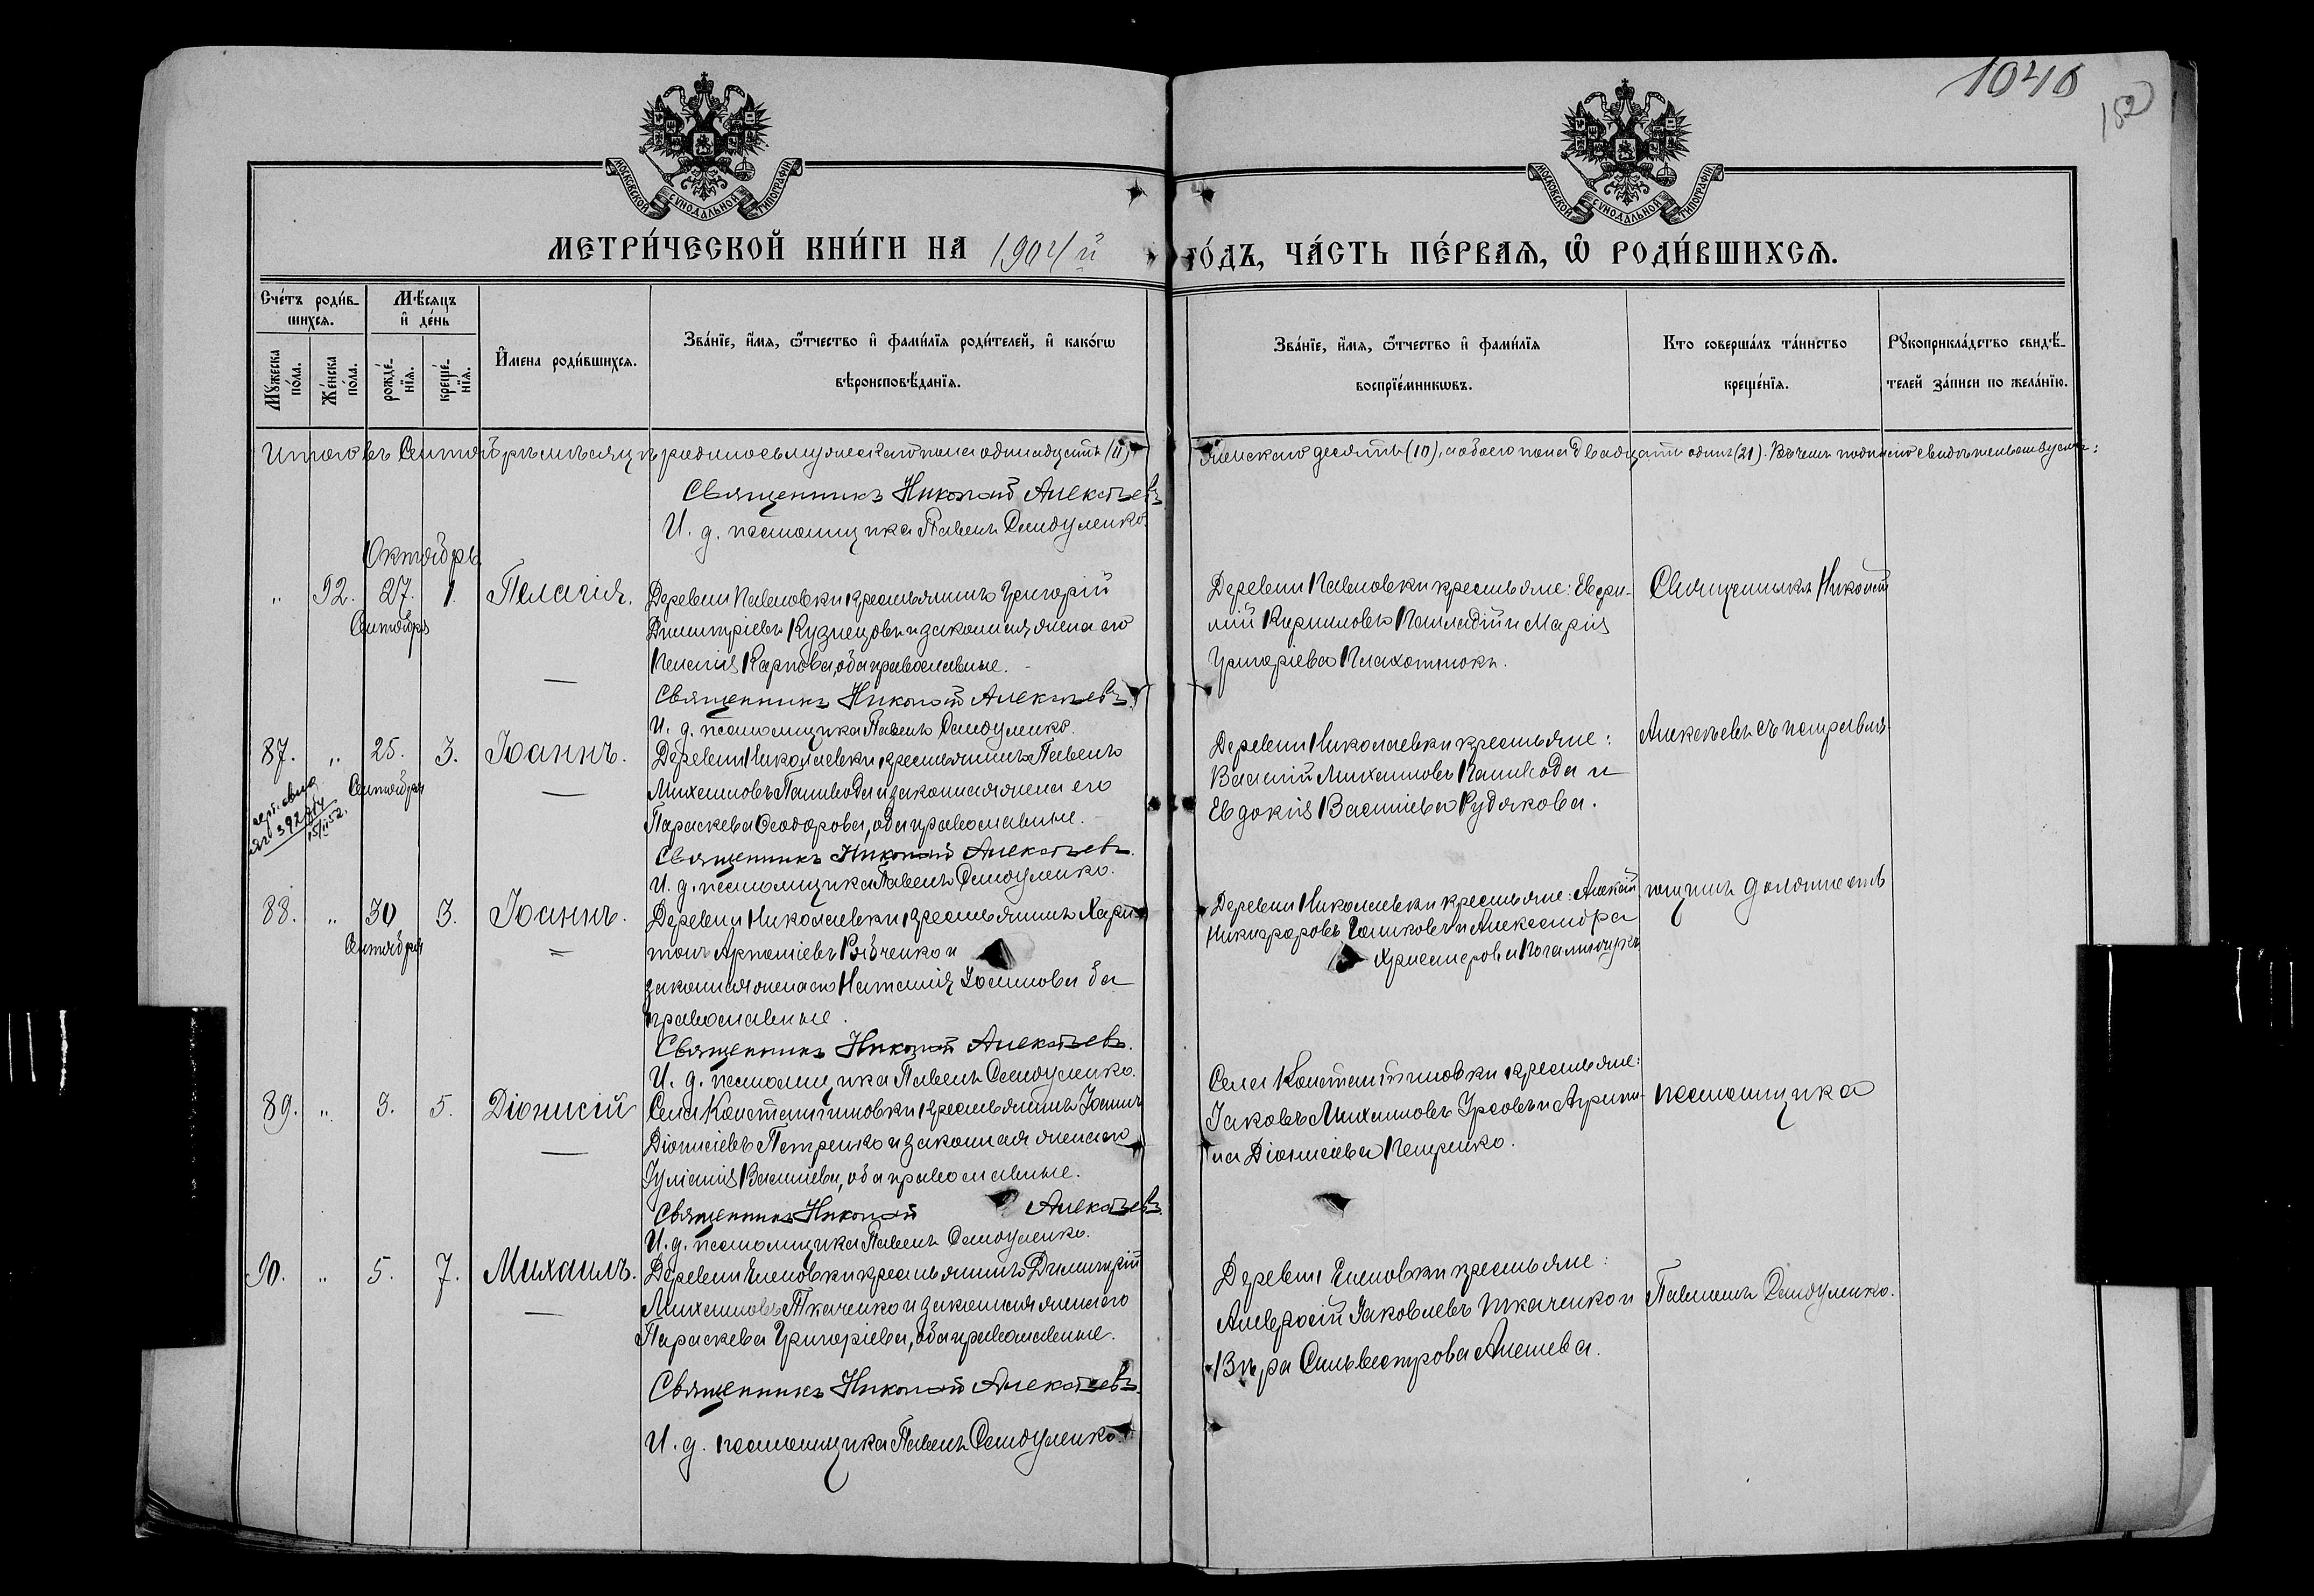 1040
152
МОСКОВСКОЙ СѴНОДАЛЬНОЙ ТИПОГРАФІИ
МОСКОВСКОЙ СѴНОДАЛЬНОЙ ТИПОГРАФІИ
МЕТРИ́ЧЕСКОЙ КНИ́ГИ НА 1904 й го́дъ, ча́сть пе́рваѧ, ѽ роди́вшихсѧ.
Сче́тъ роди́в-
шихсѧ.
Мꙋ́жеска по́ла.
Же́нска по́ла.
Мѣ́сѧцъ
и҆ де́нь
рожде́-
нїѧ.
креще́-
нїѧ.
И҆мена роди́вшихсѧ.
Зва́нїе, и҆́мѧ, ѻ҆́тчество и҆ фами́лїѧ роди́телей, и҆ како́гѡ
вѣроисповѣ́данїѧ.
Зва́нїе, и҆́мѧ, ѻ҆́тчество и҆ фами́лїѧ
воспрїе́мникѡвъ.
Кто соверша́лъ та́инство
креще́нїѧ.
Рꙋкоприкла́дство свидѣ́-
телей за́писи по жела́нїю.
Итого въ Сентябрѣ мѣсяцѣ родилось мужескаго пола одинадцать (11)
женскаго десять (10), а обоего пола двадцать одинъ (21). Въ чемъ подписью свидѣтельствуемъ:
Священникъ Николай Алексѣевъ
И. д. псаломщика Павелъ Самдуленко.
Октябрь
" 92. 27. 1. Пелагія.
Сентября
Деревни Павловки крестьянинъ Григорій
Димитріевъ Кузнецовъ и законная жена его
Пелагія Карпова, оба православные.
Священникъ Николай Алексѣевъ.
И. д. псаломщика Павелъ Самдуленко.
Деревни Павловки крестьяне: Евфи-
мій Кирилловъ Палладій и Марія
Григоріева Плахотнюкъ.
Священникъ Николай
87. " 25. 3. Іоаннъ.
Сентября
392
15/II 52.
Деревни Николаевки крестьянинъ Павелъ
Михаиловъ Паливода и законная жена его
Параскева Ѳеодорова, оба православные.
Священникъ Николай Алексѣевъ.
И. д. псаломщика Павелъ Самдуленко.
Деревни Николаевки крестьяне:
Василій Михаиловъ Паливода и
Евдокія Василіева Рудакова.
Алексѣевъ съ исправля-
88. " 30 3. Іоаннъ.
Сентября
Деревни Николаевки крестьянинъ Хари-
тонъ Артеміевъ Рябченко и
законная жена его Наталія Іоаннова оба
православные.
Священникъ Николай Алексѣевъ.
И. д. псаломщика Павелъ Самдуленко.
Деревни Николаевки крестьяне: Алексій
Никифоровъ и Александра
Христофорова
ющимъ должность
89. " 3. 5. Діонисій
Села Константиновки крестьянинъ Іоаннъ
Діонисіевъ Петренко и законная жена его
Іуліанія Василіева, оба православные.
Священникъ Николай Алексѣевъ.
И. д. псаломщика Павелъ Самдуленко.
Села Константиновки крестьяне:
Іаковъ Михаиловъ Урсовъ и Агрипи-
на Діонисіева Петренко.
псаломщика
90. " 5. 7. Михаилъ.
Деревни Еленовки крестьянинъ Димитрій
Михаиловъ Ткаченко и законная жена его
Параскева Григоріева, оба православные.
Священникъ Николай Алексѣевъ.
И. д. псаломщика Павелъ Самдуленко.
Деревни Еленовки крестьяне:
Амвросій Іаковлевъ Ткаченко и
Вѣра Сильвестрова
Павломъ Самдуленко.